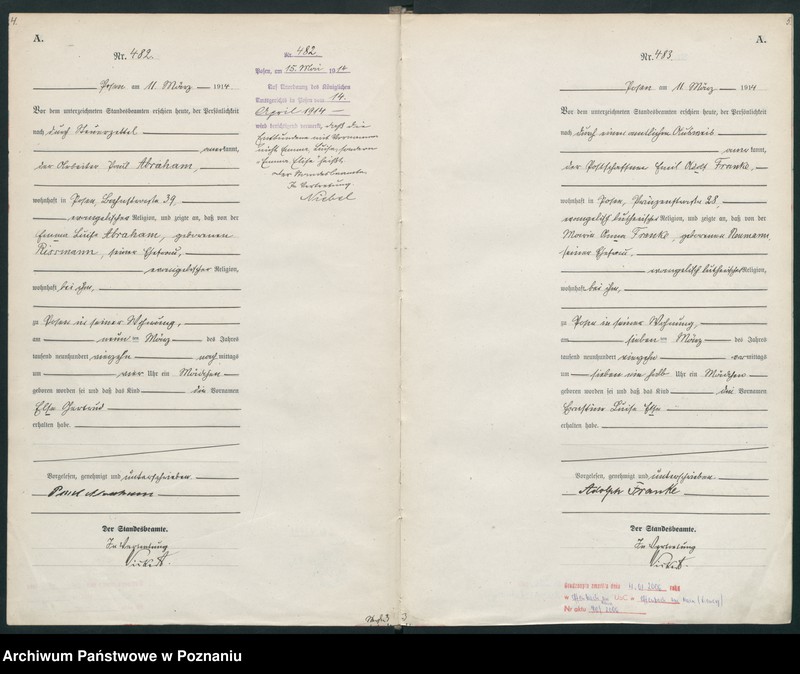 4.
A.
Nr. 482.
Posen am 11. März 1914
Vor dem unterzeichneten Standesbeamten erschien heute, der Persönlichkeit
nach durch Steuerzettel
anerkannt,
der Arbeiter Paul Abraham,
wohnhaft in Posen, 39,
evangelischer Religion, und zeigte an, daß von der
Emma Luise Abraham, geborenen
seiner Ehefrau,
evangelischer Religion,
wohnhaft bei ihm,
zu Posen in seiner Wohnung,
am neunten März des Jahres
tausend neunhundert vierzehn nachmittags
um Uhr ein Mädchen
geboren worden sei und daß das Kind die Vornamen
Else Gertrud
erhalten habe.
Vorgelesen, genehmigt und unterschrieben
Paul Abraham
Der Standesbeamte.
In Vertretung
Nr. 482
Posen, am 15. Mai 1914
Auf Anordnung des Königlichen
Amtsgerichts in Posen vom 14.
April 1914
wird berichtigend vermerkt, daß die
Entbundene mit Vornamen
nicht Emma Luise, sondern
"Emma Else" heißt.
Der Standesbeamte.
In Vertretung
Niebel
5.
A.
Nr. 483.
Posen am 11. März 1914
Vor dem unterzeichneten Standesbeamten erschien heute, der Persönlichkeit
nach durch einen amtlichen Ausweis
anerkannt,
der Postschaffner Emil Adolf Franke,
wohnhaft in Posen, 28,
evangelisch lutherischer Religion, und zeigte an, daß von der
Maria Anna Franke, geborenen Naumann
seiner Ehefrau,
evangelisch lutherischer Religion,
wohnhaft bei ihm,
zu Posen in seiner Wohnung,
am siebenten März des Jahres
tausend neunhundert vierzehn vormittags
um sieben ein halb Uhr ein Mädchen
geboren worden sei und daß das Kind die Vornamen
Luise Else
erhalten habe.
Vorgelesen, genehmigt und unterschrieben
Adolph Franke
Der Standesbeamte.
In Vertretung
Nr aktu
Archiwum Państwowe w Poznaniu